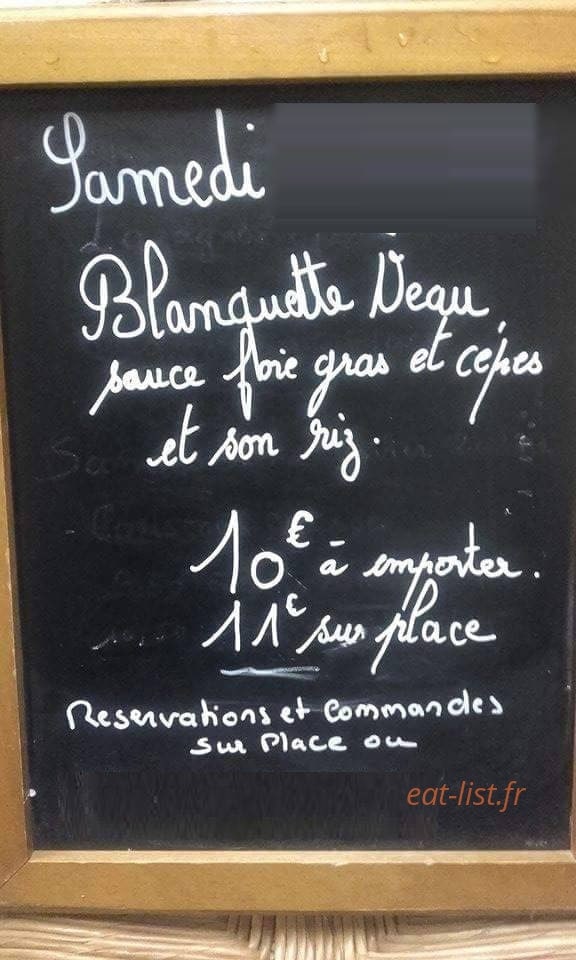 Samedi
Blanquette Veau,
sauce foie gras et cèpes
et son riz.
10€ à emporter.
11€ sur place
Reservations et Commandes
sur Place ou
eat-list.fr